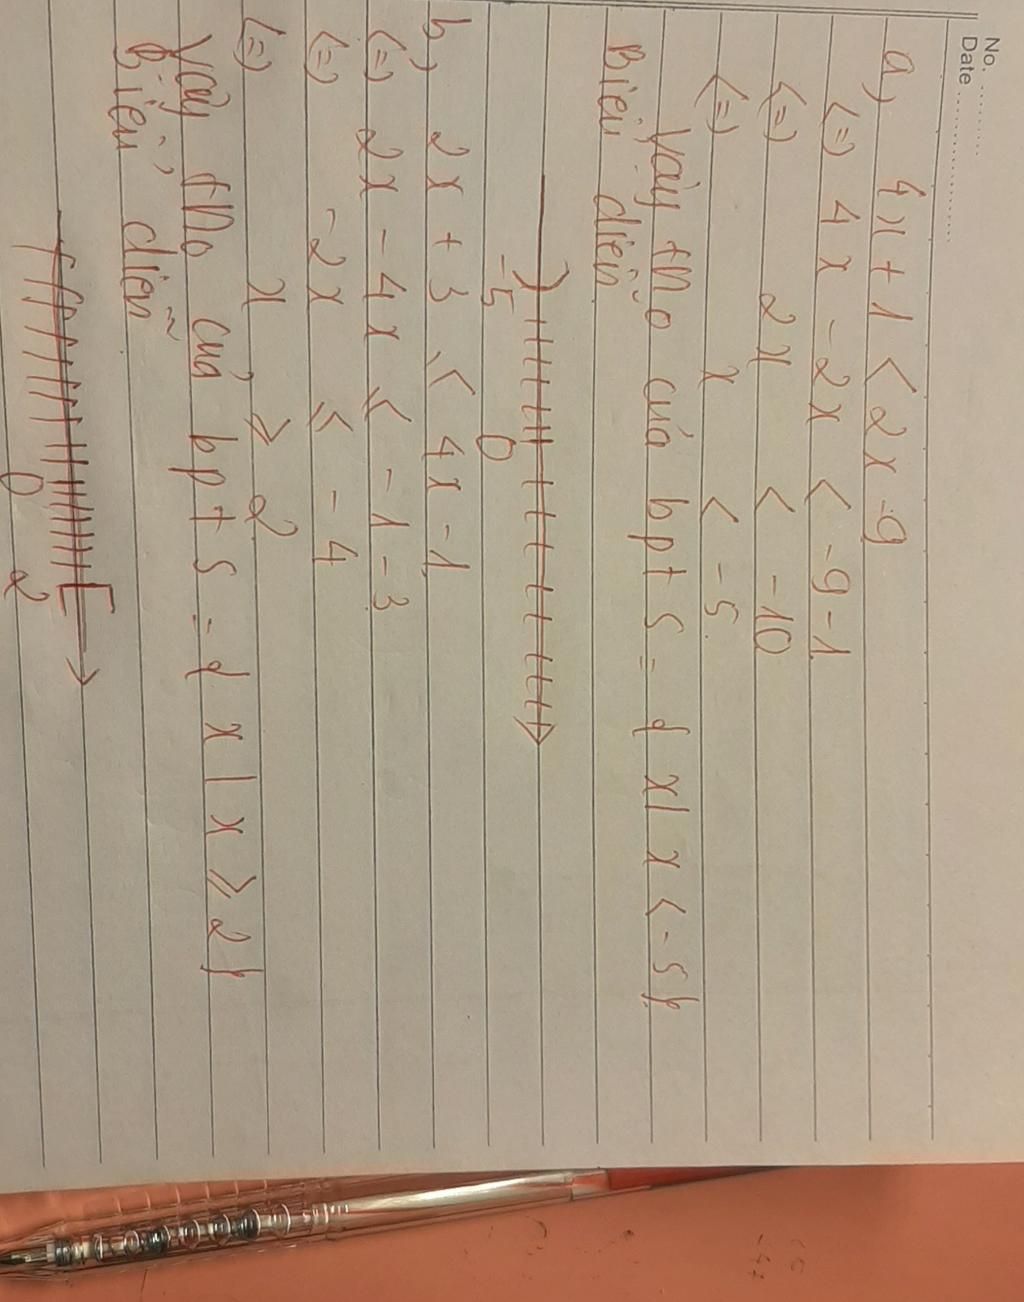 No.
Date
a, 4x + 1 < 2x - 9
(=) 4x - 2x < -9 - 1
(=) 2x < -10
(=) x < -5
Vậy tno của bpt S = { x | x < -5 }
Biểu diễn
-5 0
b, 2x + 3 ≤ 4x - 1
(=) 2x - 4x ≤ -1 - 3
(=) -2x ≤ -4
(=) x ≥ 2
Vậy tno của bpt S = { x | x ≥ 2 }
Biểu diễn
0 2